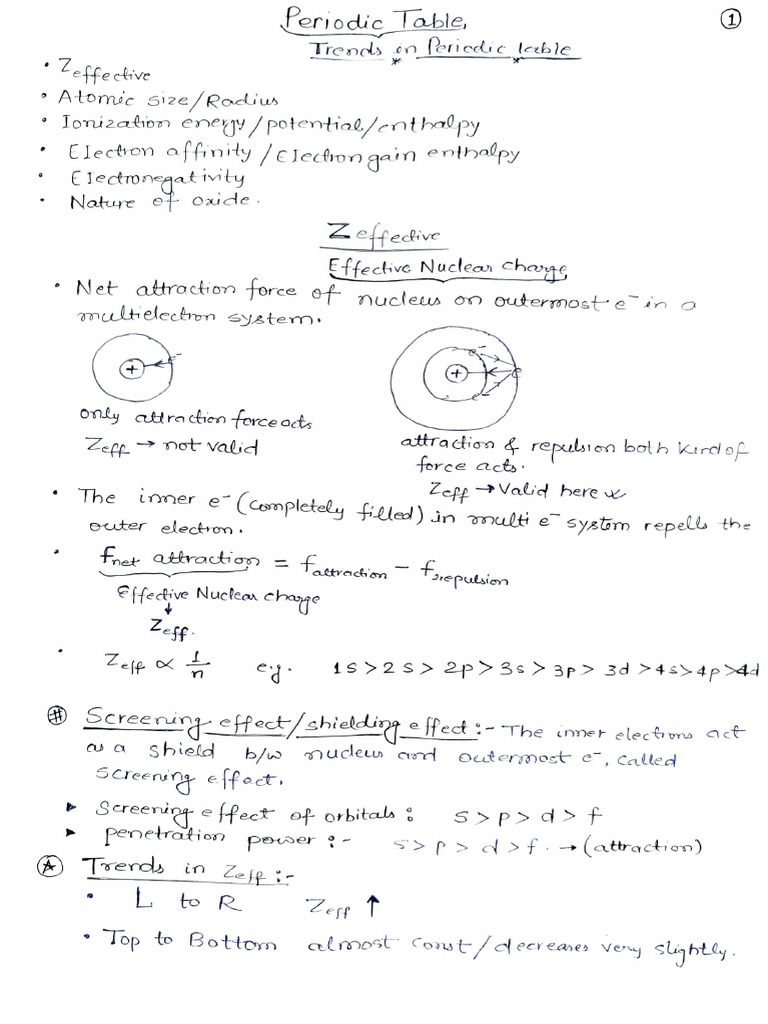 Periodic Table, ①
Trends on Periodic table
• Zeffective
• Atomic size/Radius
• Ionization energy/potential/enthalpy
• Electron affinity/Electron gain enthalpy
• Electronegativity
• Nature of oxide.
Zeffective
Effective Nuclear charge,
• Net attraction force of nucleus on outermost e⁻ in a
multielectron system.
+ e⁻
+ e⁻ e⁻ e
only attraction force acts
Zeff → not valid
attraction & repulsion both kind of
force acts.
Zeff → Valid here
• The inner e⁻ (completely filled) in multi e⁻ system repells the
outer electron.
• fnet attraction = fattraction − frepulsion
Effective Nuclear charge
↓
Zeff.
• Zeff ∝ 1/n e.g. 1s > 2s > 2p > 3s > 3p > 3d > 4s > 4p > 4d
# Screening effect/shielding effect:- The inner electrons act
as a shield b/w nucleus and outermost e⁻, called
screening effect.
▸ Screening effect of orbitals: s > p > d > f
▸ penetration power:- s > p > d > f. → (attraction)
☆ Trends in Zeff:-
• L to R Zeff ↑
• Top to Bottom almost const/decreases very slightly.